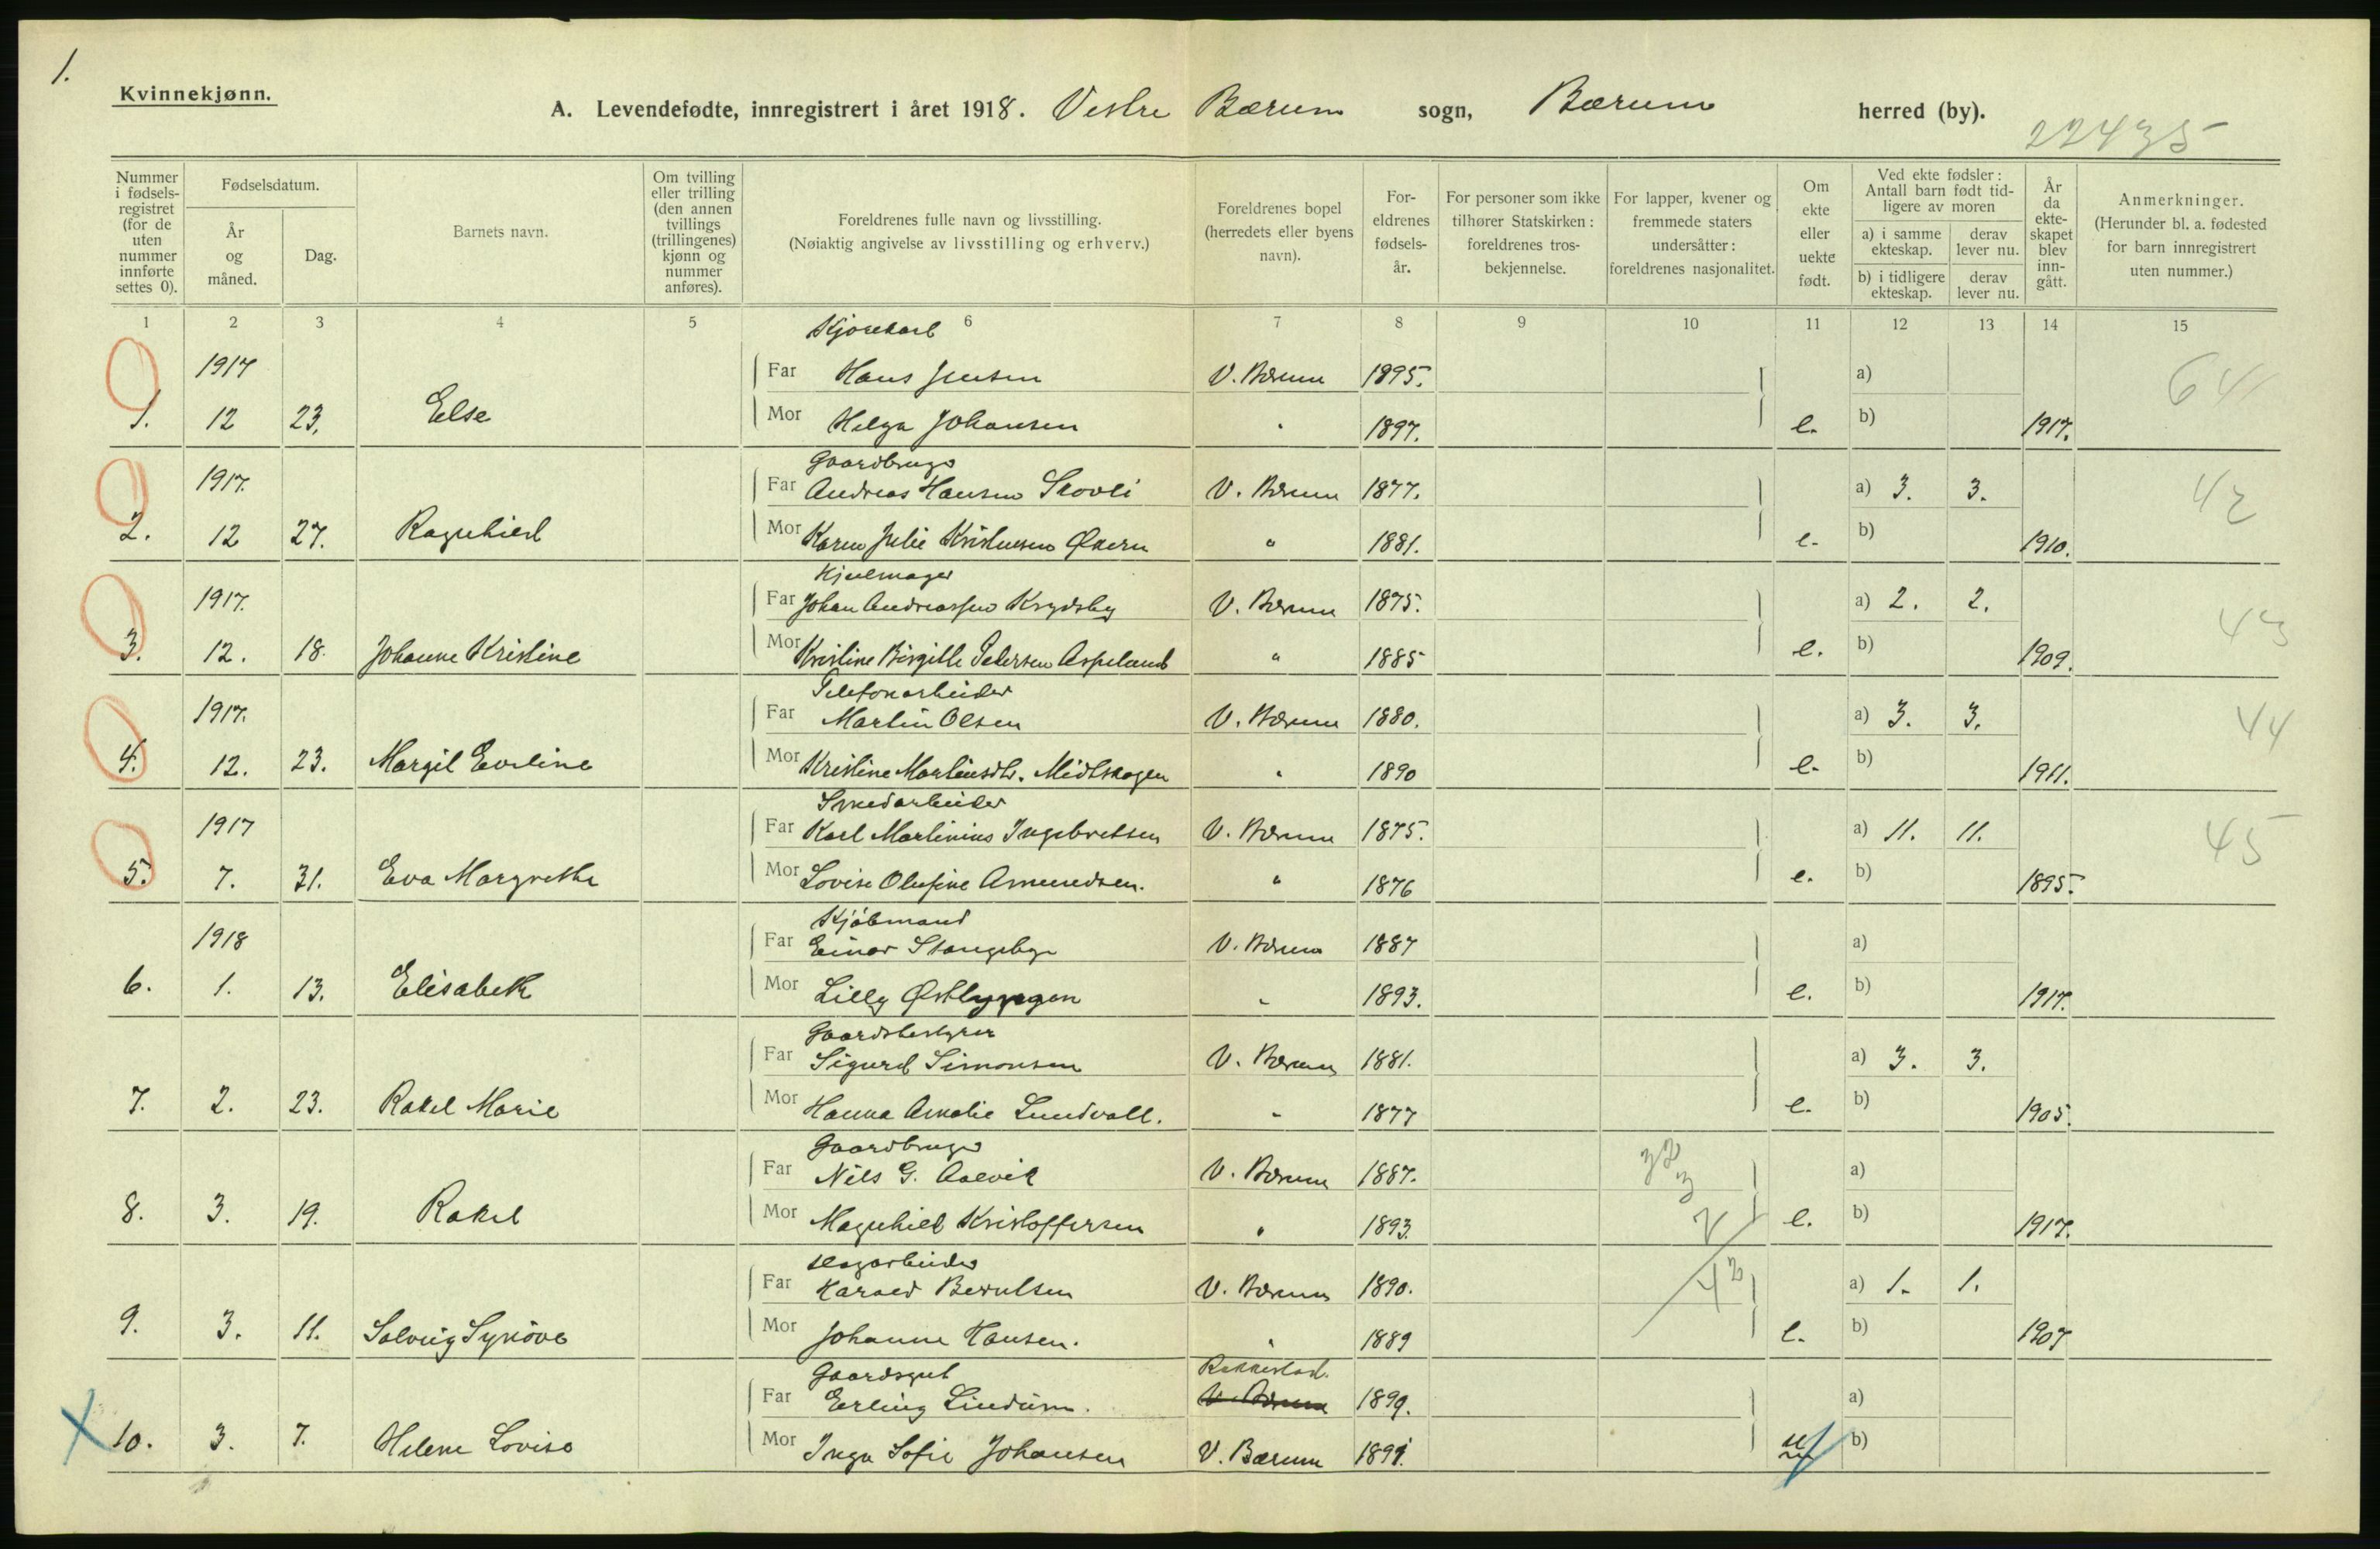 1.
Kvinnekjønn.
A. Levendefødte, innregistrert i året 1918. Vestre Bærum sogn, Bærum herred (by).
22435
Nummer i fødsels-registret (for de uten nummer innførte settes 0).
Fødselsdatum.
År og måned.
Dag.
Barnets navn.
Om tvilling eller trilling (den annen tvillings (trillingenes) kjønn og nummer anføres).
Foreldrenes fulle navn og livsstilling.
(Nøiaktig angivelse av livsstilling og erhverv.)
Foreldrenes bopel (herredets eller byens navn).
For-eldrenes fødsels-år.
For personer som ikke tilhører Statskirken: foreldrenes tros-bekjennelse.
For lapper, kvener og fremmede staters undersåtter: foreldrenes nasjonalitet.
Om ekte eller uekte født.
Ved ekte fødsler: Antall barn født tid-ligere av moren
a) i samme ekteskap.
derav lever nu.
b) i tidligere ekteskap.
derav lever nu.
År da ekte-skapet blev inn-gått.
Anmerkninger.
(Herunder bl. a. fødested for barn innregistrert uten nummer.)
1 2 3 4 5 6 7 8 9 10 11 12 13 14 15
Kjørekarl
1917 Far Hans Jensen V. Bærum 1895. a) 64
1. 12 23. Else Mor Helga Johansen " 1897. e. b) 1917.
Gaardbruger
1917. Far Andreas Hansen Skovli V. Bærum 1877. a) 3. 3. 42
2. 12 27. Ragnhild Mor Karen Julie Kristensen Økern " 1881. e. b) 1910.
Hjulmager
1917. Far Johan Andreassen Krydsby V. Bærum 1875. a) 2. 2. 43
3. 12. 18. Johanne Kristine Mor Kristine Birgitte Pedersen Aspeland " 1885 e. b) 1909.
Telefonarbeider
1917. Far Martin Olsen V. Bærum 1880. a) 3. 3. 44
4. 12. 23. Margit Eveline Mor Kristine Martinsdtr. Midtskogen " 1890 e. b) 1911.
Smedarbeider
1917 Far Karl Martinius Ingebretsen V. Bærum 1875. a) 11. 11. 45
5. 7. 31. Eva Margrethe Mor Lovise Olufine Amundsen. " 1876 e. b) 1895.
Kjøbmand
1918 Far Einar Stangebye V. Bærum 1887 a)
6. 1. 13. Elisabeth Mor Lilly Østbyhagen " 1893. e. b) 1917.
Gaardsbestyrer
Far Sigurd Simonsen V. Bærum 1881. a) 3. 3.
7. 2. 23. Rakel Marie Mor Hanna Amalie Lundvall. " 1877 e. b) 1905.
Gaardbruger
Far Nils G. Aalvik V. Bærum 1887. a)
8. 3. 19. Rakel Mor Magnhild Kristoffersen " 1893. e. b) 1917.
Far Harald Berntsen V. Bærum 1890. a) 1. 1.
9. 3. 11. Solveig Synøve Mor Johanne Hansen. " 1889 e. b) 1907
Gaardsgut Rakkestad.
Far Erling Lindum. V. Bærum 1899. a)
10. 3. 7. Helene Lovise Mor Inga Sofie Johansen V. Bærum 1891. b)